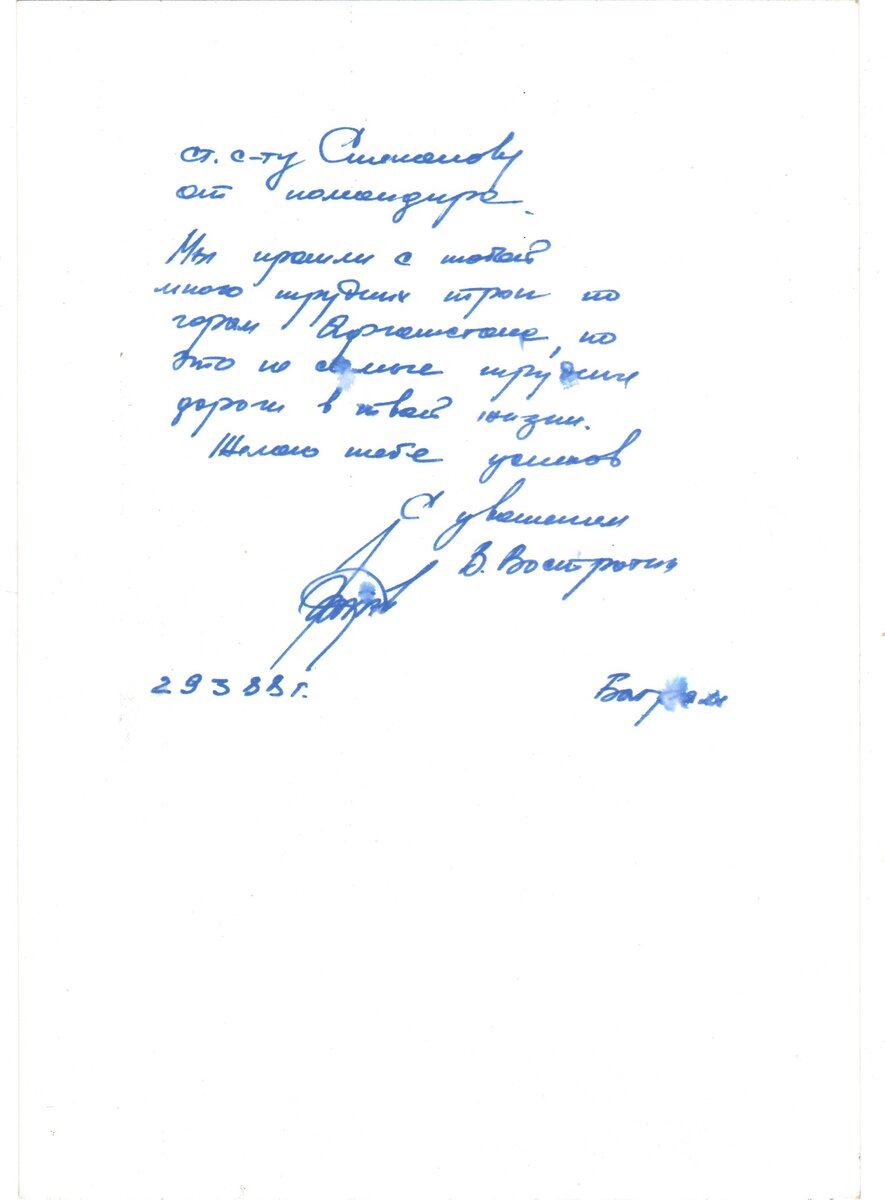 ст. с-ту Степанову
от командира.
Мы прошли с тобой
много трудных троп по
горам Афганистана, но
это не самые трудные
дороги в твоей жизни.
Желаю тебе успехов
С уважением
В. Востротин
29 3 88 г.
Баграм